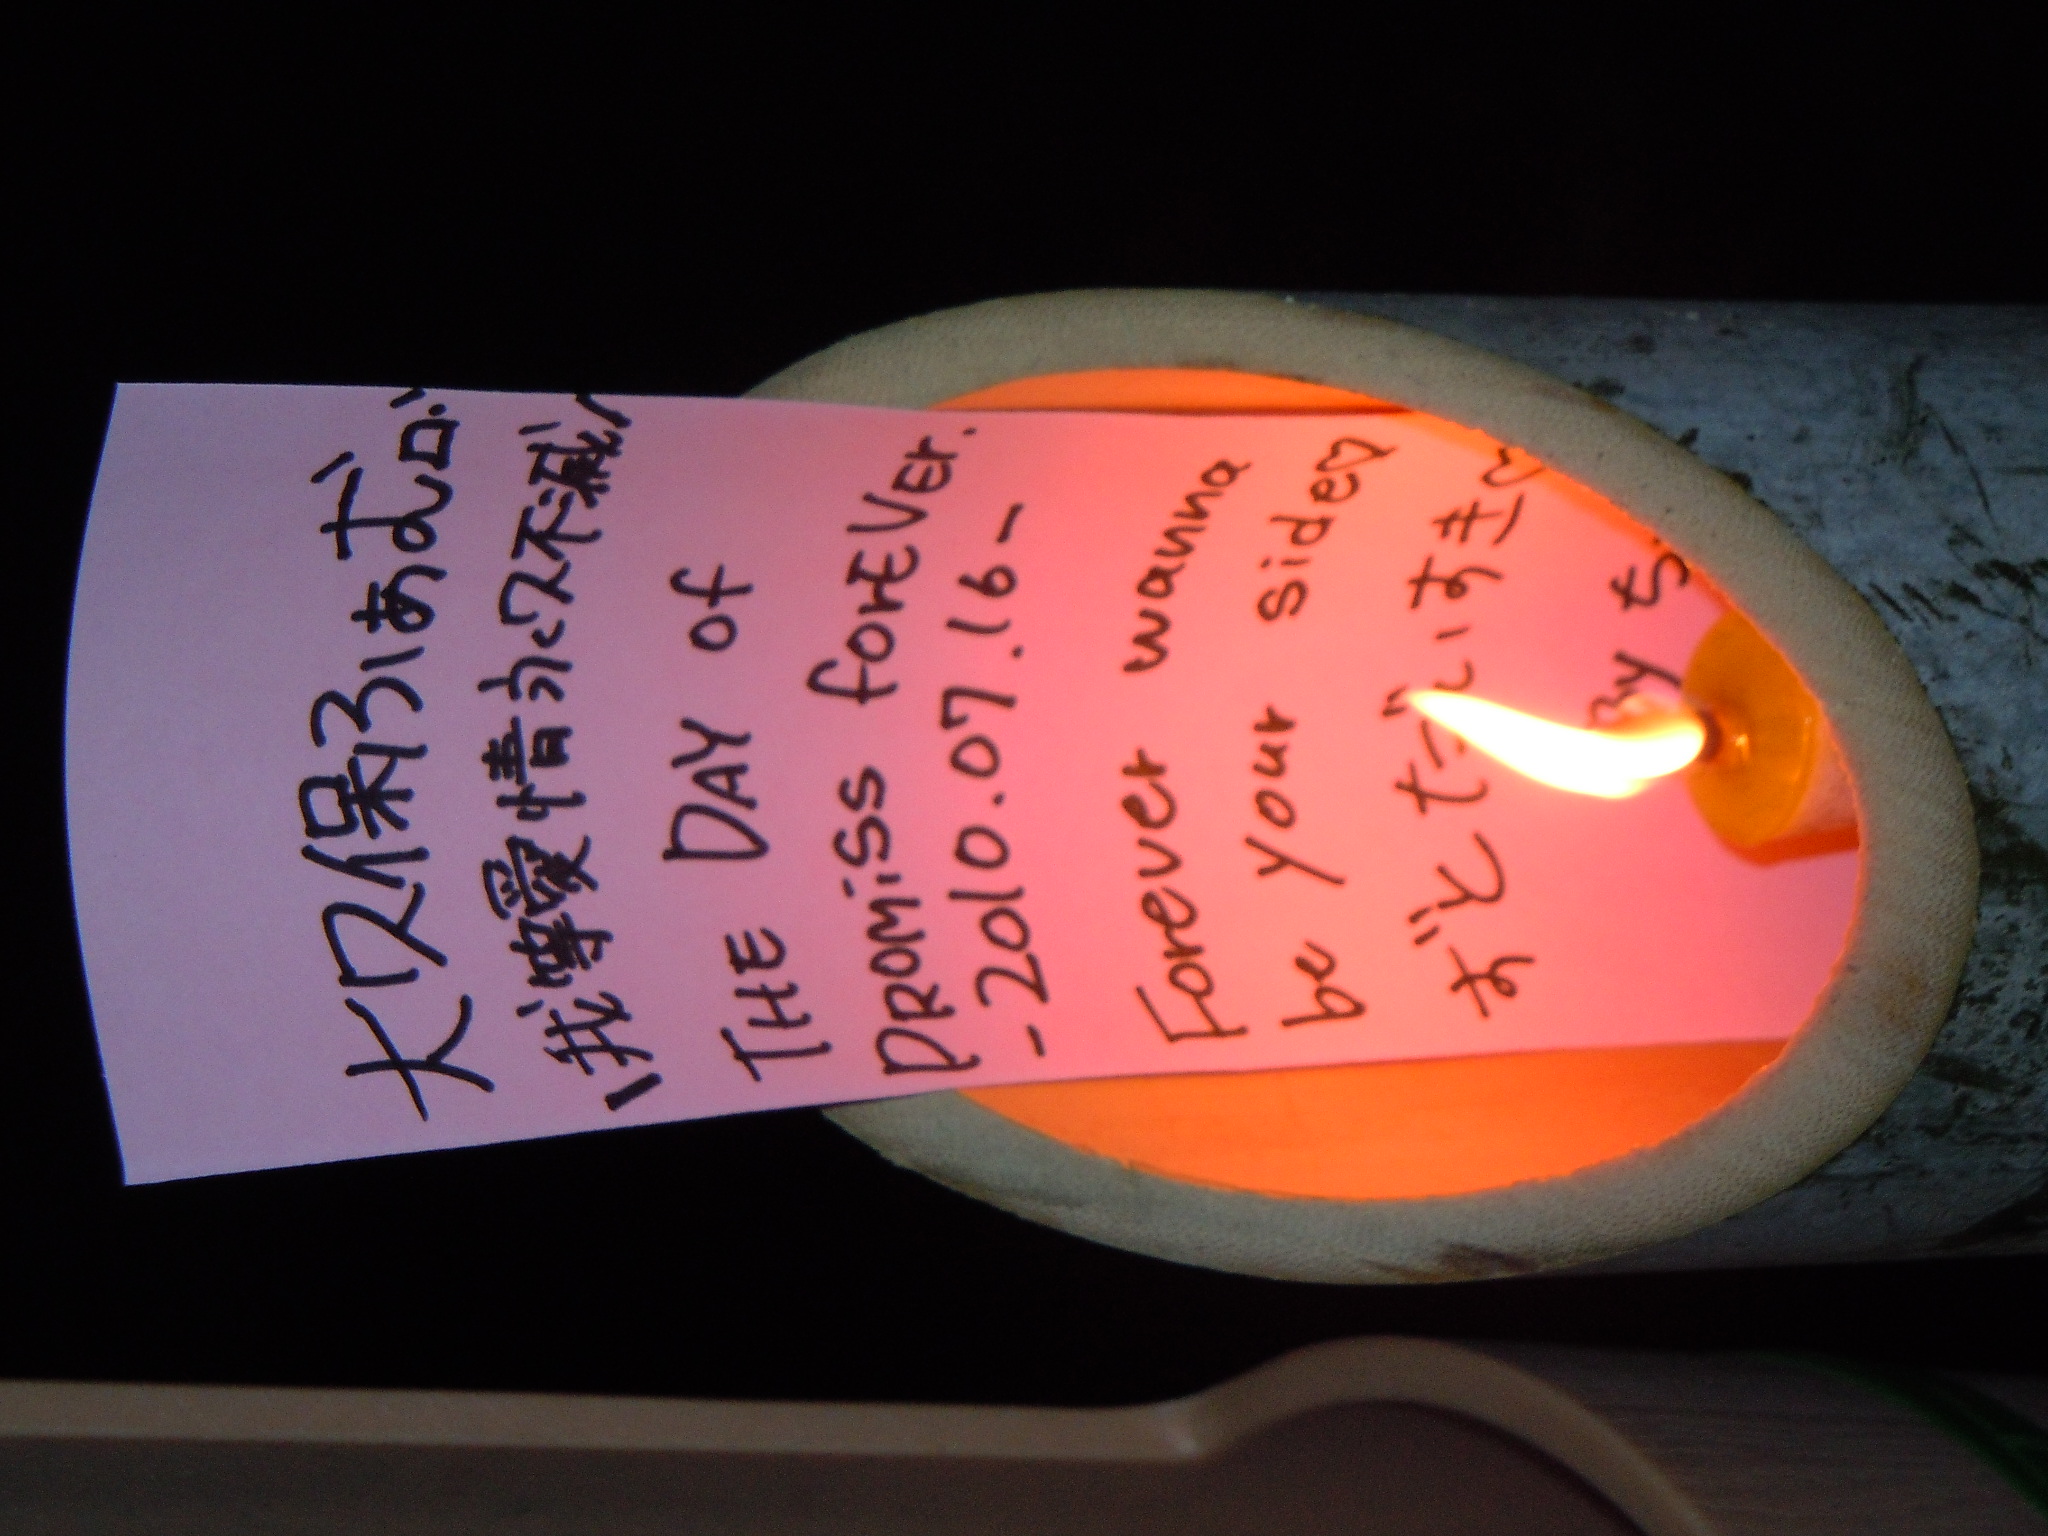 大久保
愛情永久不滅
THE DAY of
PROMiSS forEVEr.
-2010.07.16-
Forever wanna
be your side♡
ずとだいすき♡
By ち